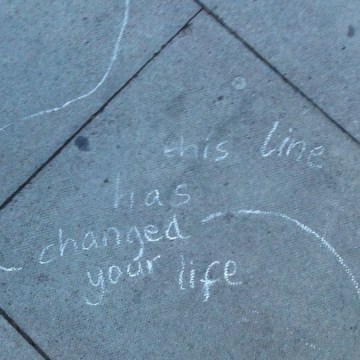 this line
has
changed
your life